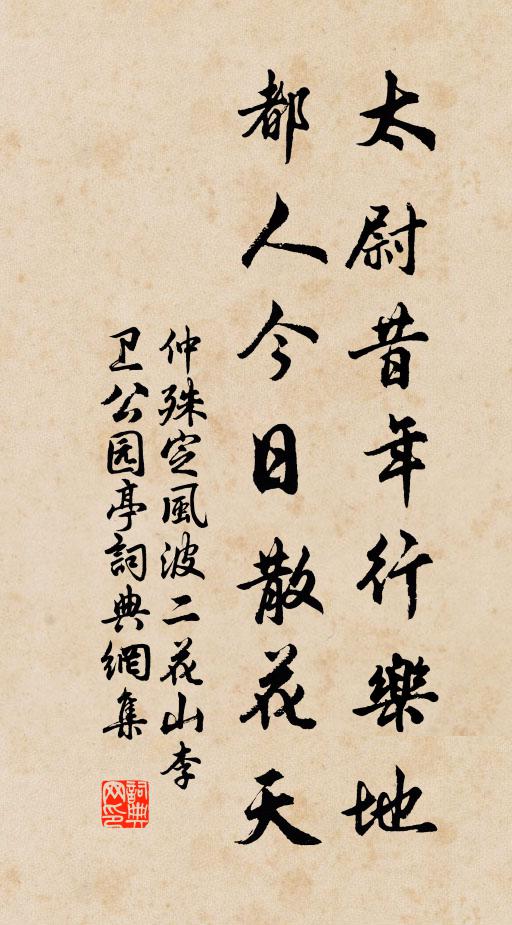 太尉昔年行樂地
都人今日散花天
仲殊定風波二花山李
卫公园亭詞典網集
詞典
网印